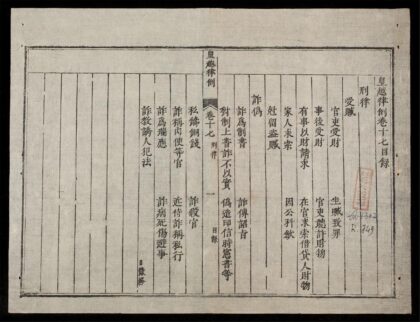 皇越律例卷十七目錄
刑律
受贓
官吏受財 坐贓致罪
事後受財 官吏聽許財物
有事以財請求 在官求索借貸人財物
家人求索 因公科斂
尅留盜贓
詐偽
詐為制書 詐傳詔旨
對制上書詐不以實 偽造印信時憲書等
皇越律例 卷十七 刑律 一 目錄
私鑄銅錢 詐假官
詐稱內使等官 近侍詐稱私行
詐為瑞應 詐病死傷避事
詐教誘人犯法